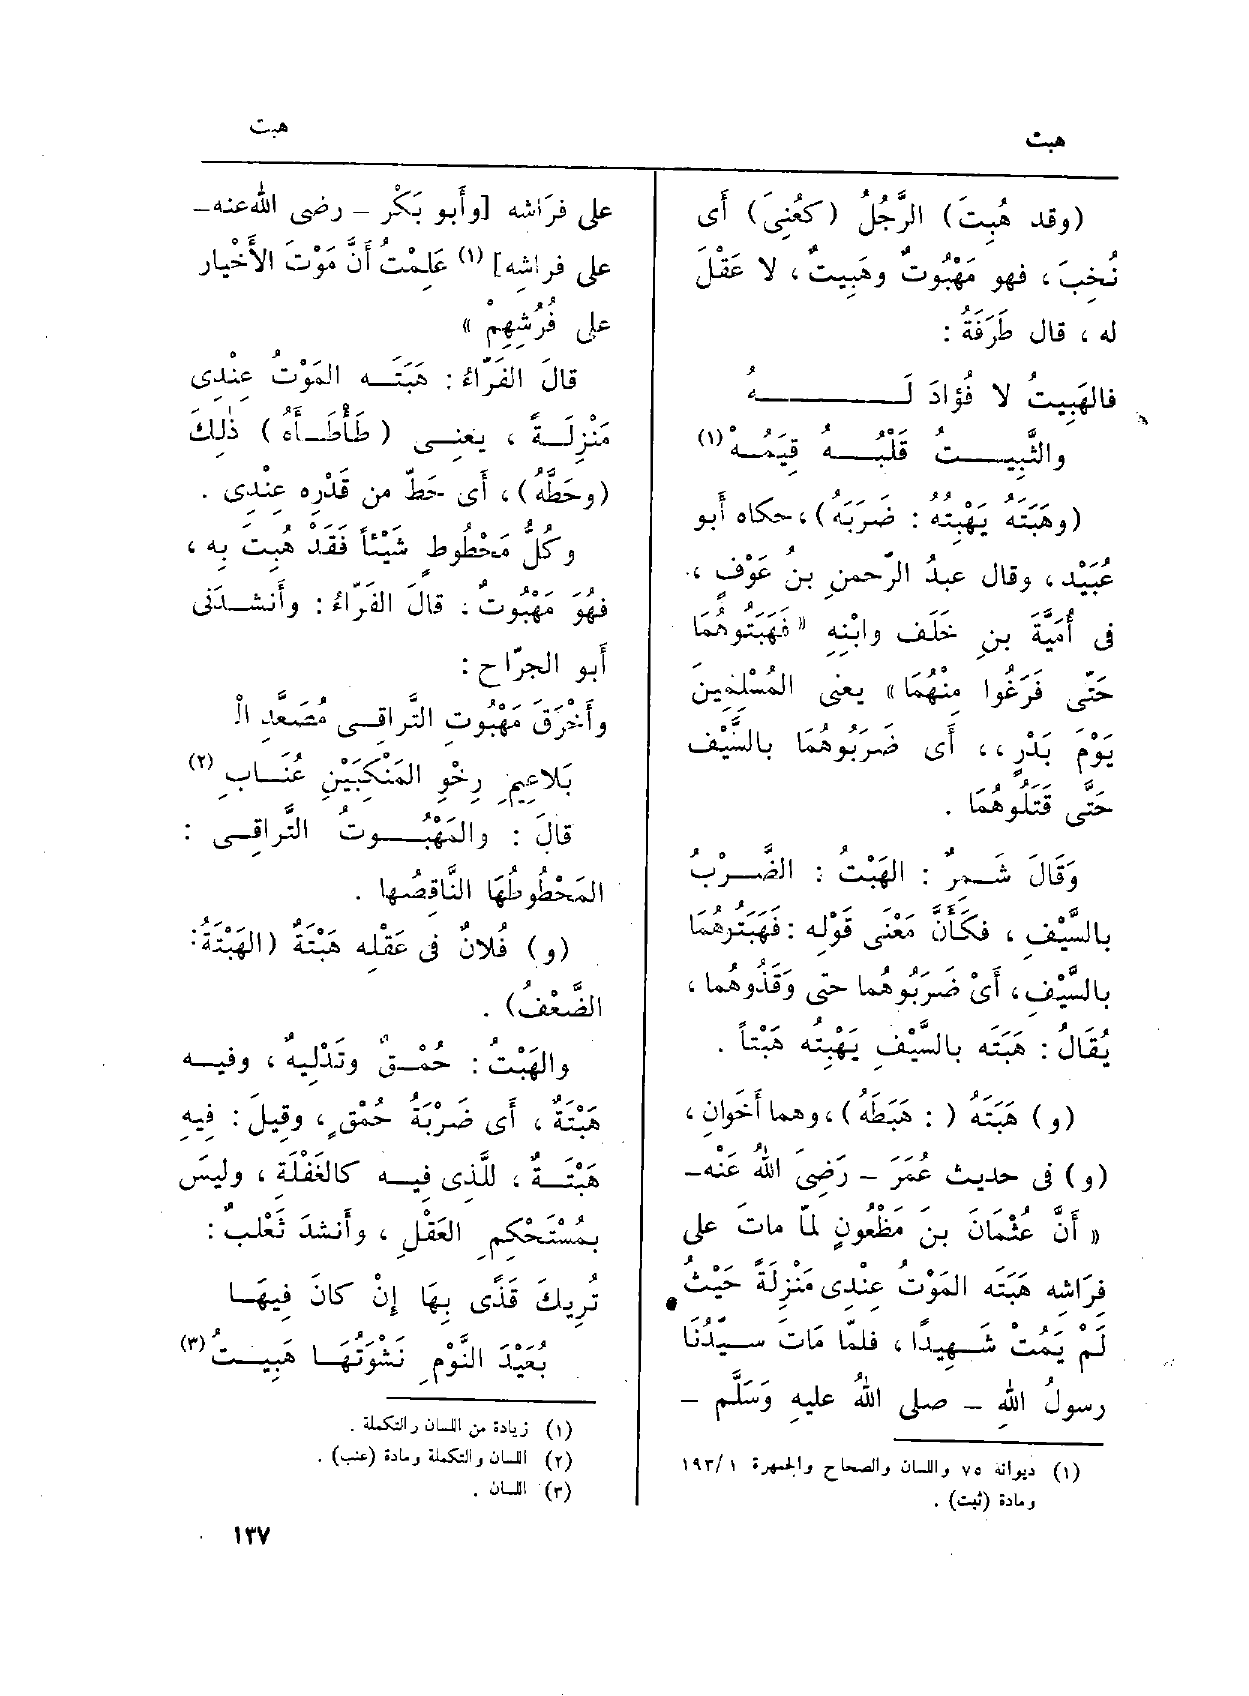 هبت
هبت
(وقد هُبِتَ) الرَّجُلُ (كعُنِىَ) أَى
نُخِبَ ، فهو مَهْبُوتٌ وهَبِيتٌ ، لا عَقْلَ
له ، قال طَرَفَةُ :
فالهَبِيتُ لا فُؤادَ لَــــــهُ
والثَّبِيــــتُ قَلْبُــــهُ قِيَمُــهْ (١)
(وهَبَتَهُ يَهْبِتُهُ : ضَرَبَهُ) ، حكاه أَبو
عُبَيْد ، وقال عبدُ الرّحمنِ بنُ عَوْفٍ ،
فى أُمَيَّةَ بنِ خَلَف وابْنِهِ « فَهَبَتُوهُمَا
حَتّى فَرَغُوا مِنْهُمَا » يعنى المُسْلِمِينَ
يَوْمَ بَدْرٍ ، ، أَى ضَرَبُوهُمَا بالسَّيْف
حَتَّى قَتَلُوهُمَا .
وَقَالَ شَمِرٌ : الهَبْتُ : الضَّرْبُ
بالسَّيْفِ ، فكَأَنَّ مَعْنَى قَوْلِه : فَهَبَتُوهُمَا
بالسَّيْفِ ، أَىْ ضَرَبُوهُما حتى وَقَذُوهُما ،
يُقَالُ : هَبَتَه بالسَّيْفِ يَهْبِتُه هَبْتاً .
(و) هَبَتَهُ ( : هَبَطَهُ) ، وهما أَخَوانِ ،
(و) فى حديث عُمَرَ – رَضِىَ اللهُ عَنْه–
« أَنَّ عُثْمَانَ بنَ مَظْعُونٍ لمّا ماتَ على
فِرَاشِه هَبَتَه المَوْتُ عِنْدِى مَنْزِلَةً حَيْثُ
لَمْ يَمُتْ شَهِيدًا ، فلمّا مَاتَ سيِّدُنَا
رسولُ اللهِ – صلى اللهُ عليهِ وَسَلَّم –
(١) ديوانه ٧٥ واللسان والصحاح والجمهرة ١٩٣/١
ومادة (ثبت) .
على فِرَاشه [وأَبو بَكْر – رضى اللهعنه–
على فراشِه] (١) عَلِمْتُ أَنَّ مَوْتَ الأَخْيار
على فُرُشِهِمْ »
قالَ الفَرّاءُ : هَبَتَــه المَوْتُ عِنْدِى
مَنْزِلَــةً ، يعنــى (طَأْطَــأَه) ذٰلِكَ
(وحَطَّهُ) ، أَى حَطّ من قَدْرِه عِنْدِى .
وكُلُّ مَحْطُوطٍ شَيْئاً فَقَدْ هُبِتَ بِه ،
فهُوَ مَهْبُوتٌ . قالَ الفَرّاءُ : وأَنشــدَنى
أَبو الجرّاح :
وأَخْرَقَ مَهْبُوتِ التَّراقِــى مُصَعَّدِ الْ
بَلاعِيمِ رِخْوِ المَنْكِبَيْنِ عُنَــابِ (٢)
قالَ : والمَهْبُــوتُ التَّراقِــى :
المَحْطُوطُهَا النَّاقِصُها .
(و) فُلانٌ فى عَقْلِه هَبْتَةٌ (الهَبْتَةُ:
الضَّعْفُ) .
والهَبْتُ : حُمْــقٌ وتَدْلِيهٌ ، وفيــه
هَبْتَةٌ ، أَى ضَرْبَةُ حُمْقٍ ، وقِيلَ : فِيهِ
هَبْتَــةٌ ، للَّذِى فِيــه كالغَفْلَةِ ، وليسَ
بمُسْتَحْكِمِ العَقْلِ ، وأَنشدَ ثَعْلبٌ :
تُرِيكَ قَذًى بِهَا إِنْ كانَ فِيهَــا
بُعَيْدَ النَّوْمِ نَشْوَتُهَــا هَبِيــتُ (٣)
(١) زيادة من اللسان والتكملة .
(٢) اللسان والتكملة ومادة (عنب) .
(٣) اللسان .
١٣٧